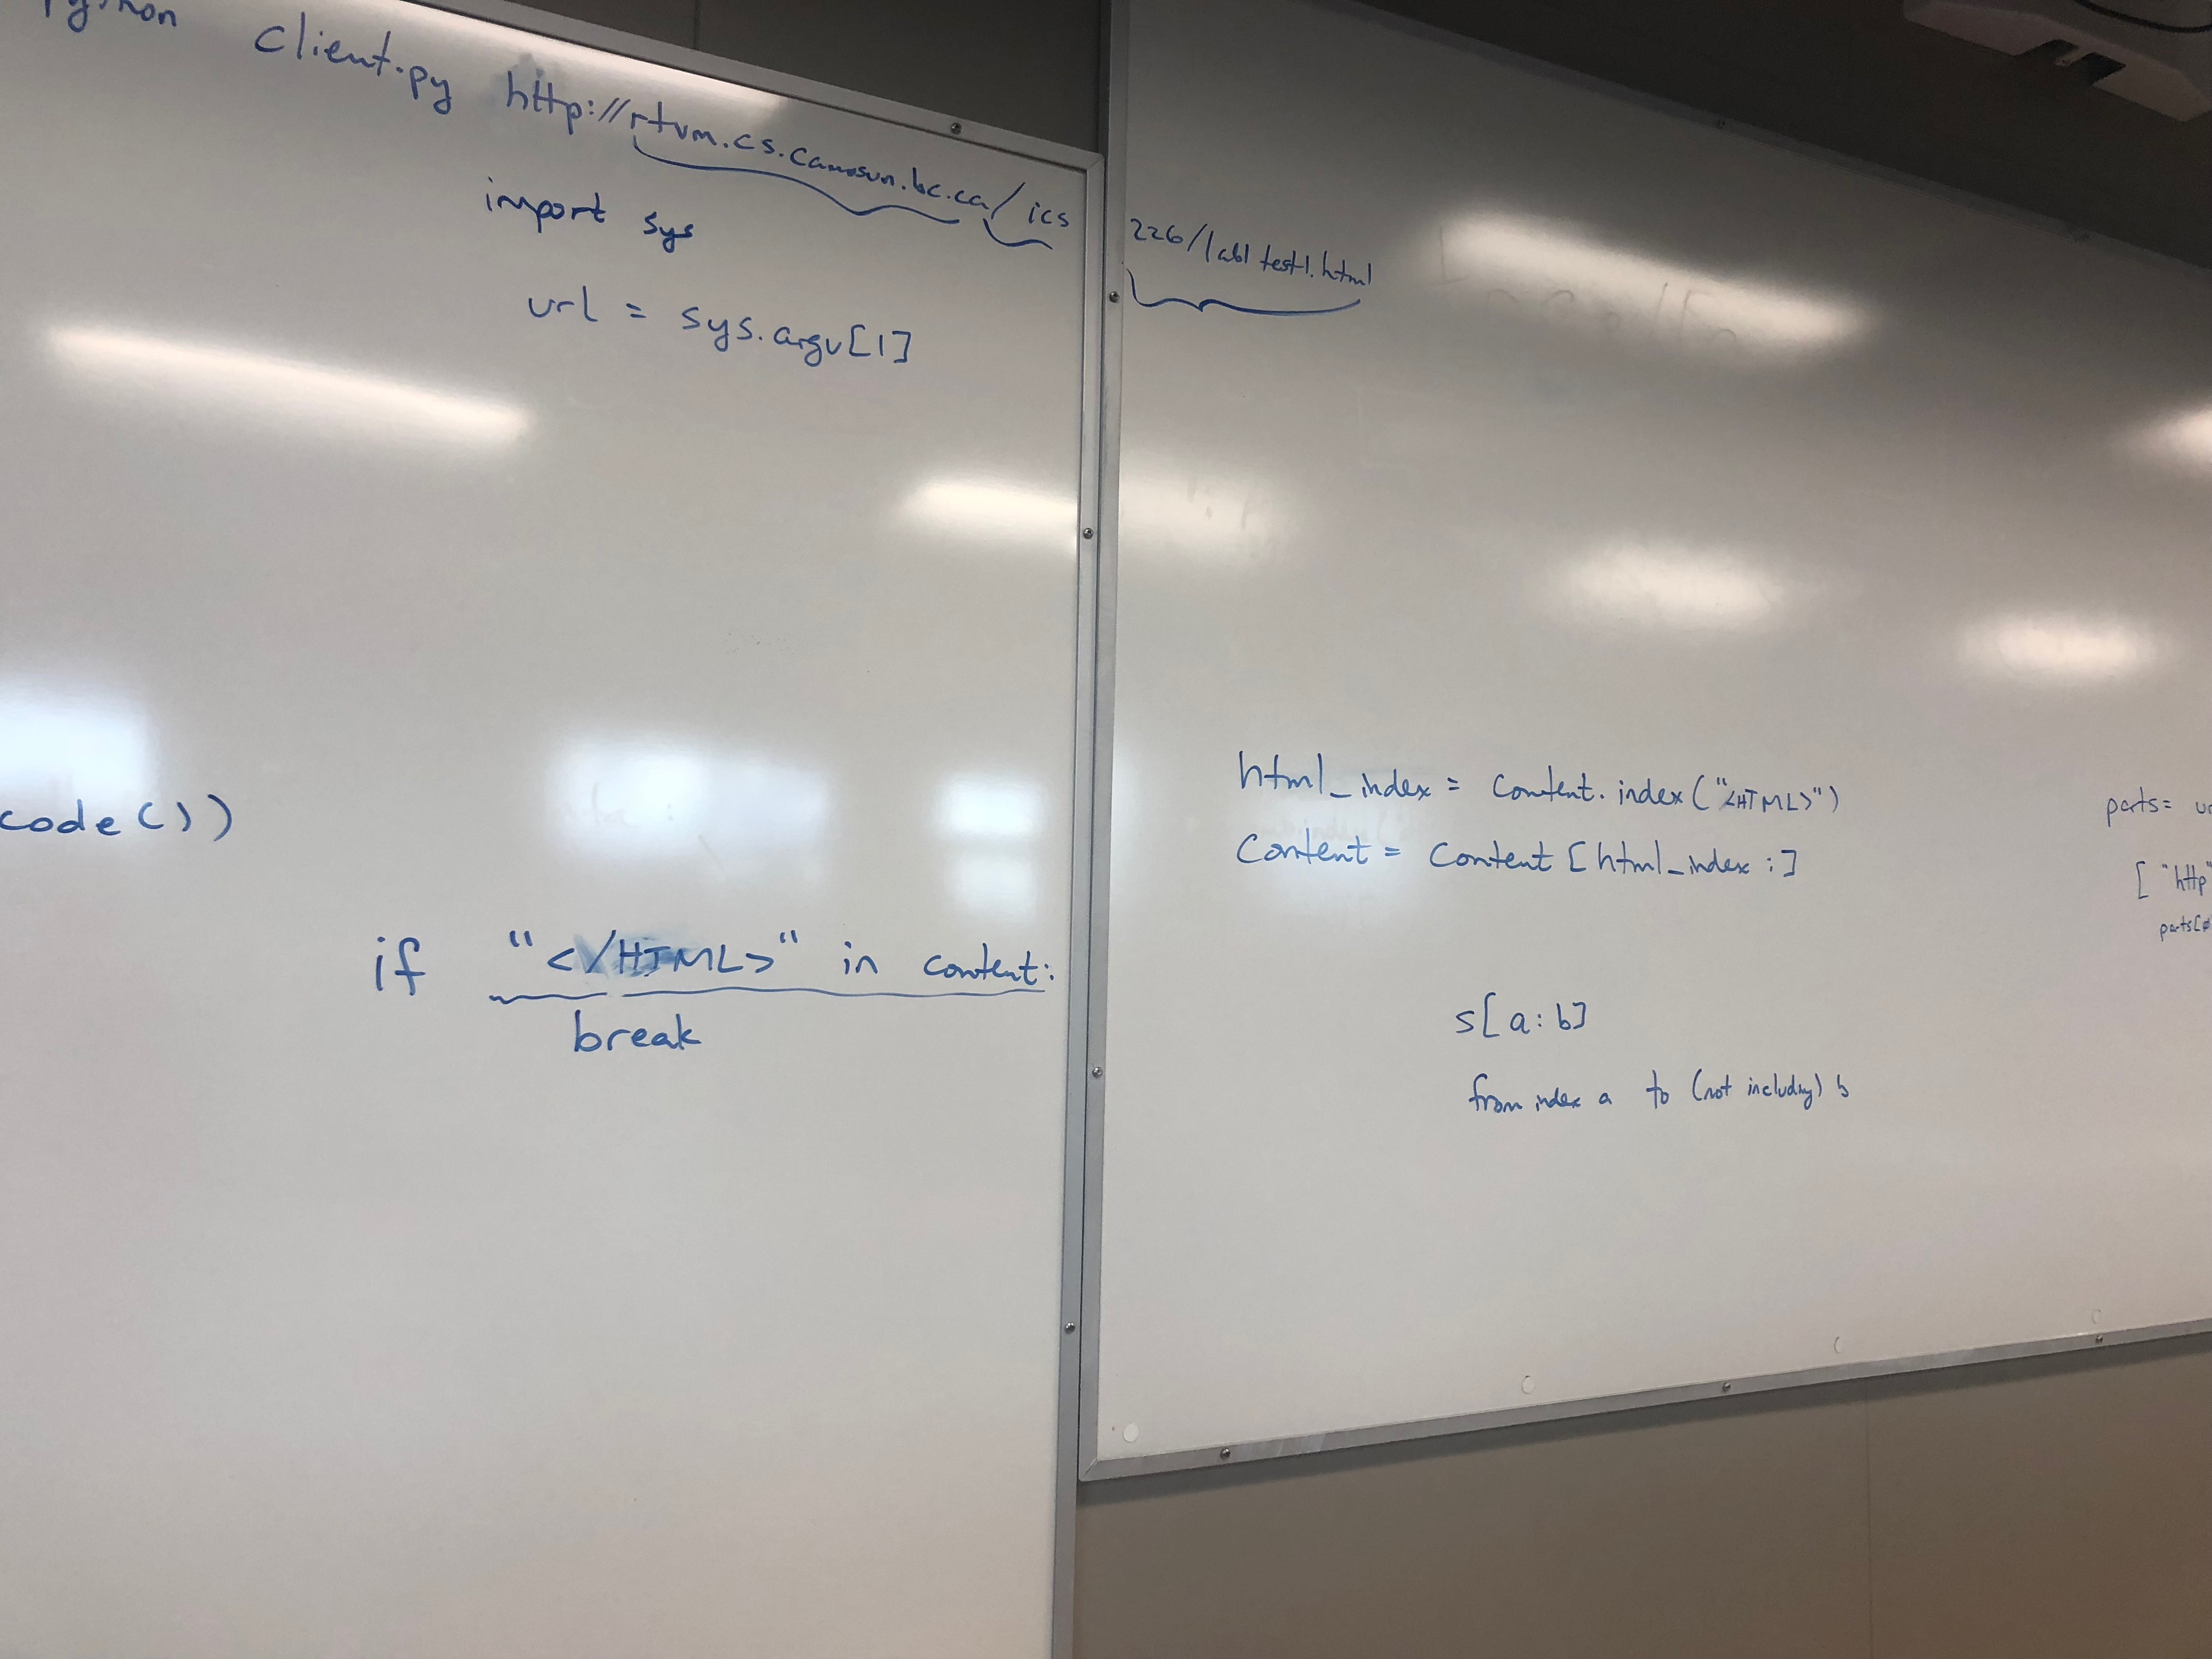 python client.py http://rtvm.cs.camosun.bc.ca/ics 226/lab1test1.html
import sys
url = sys.argv[1]
code())
if "</HTML>" in content:
break
html_index = content.index("<HTML>")
Content = Content[html_index:]
s[a:b]
from index a to (not including) b
parts=
["http"
parts[0